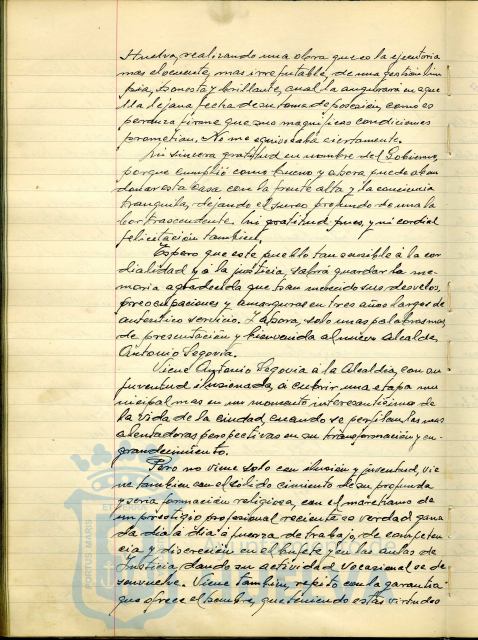 Huelva, realizando una obra que es la ejecutoria
mas elocuente, mas irrefutable, de una gestion lim
pia, honesta y brillante, cual la auguraba en aque
lla lejana fecha de su toma de posesión, como es
peranza firme que sus magnificas condiciones
prometian. No me equivocaba ciertamente.
Mi sincera gratitud en nombre del Gobierno,
porque cumplió como bueno y ahora puede aban
donar esta casa con la frente alta y la conciencia
tranquila, dejando el surco profundo de una la
bor trascendente. Mi gratitud pues, y mi cordial
felicitación tambien.
Espero que este pueblo tan sensible á la cor
dialidad y á la justicia, sabrá guardar la me-
moria agradecida que han merecido sus desvelos,
preocupaciones y amarguras en tres años largos de
autentico servicio. Y ahora, solo unas palabras mas,
de presentación y bienvenida al nuevo alcalde,
Antonio Segovia.
Viene Antonio Segovia á la Alcaldia, con su
juventud ilusionada, á cubrir una etapa mu
nicipal mas en un momento interesantisimo de
la vida de la ciudad, cuando se perfilan las mas
alentadoras perspectivas en su transformación y en-
grandecimiento.
Pero no viene solo con ilusión y juventud, vie
ne tambien con el sólido cimiento de su profunda
y seria formación religiosa, con el
un prestigio profesional reciente es verdad, gana
do dia á dia á fuerza de trabajo, de competen-
cia y discreción en el bufete y en las aulas de
Justicia, donde su actividad vocacional se de
senvuelve. Viene tambien, repito con la garantia
que ofrece el hombre, que teniendo estas virtudes
PORTUS MARIS
ET TERRÆ